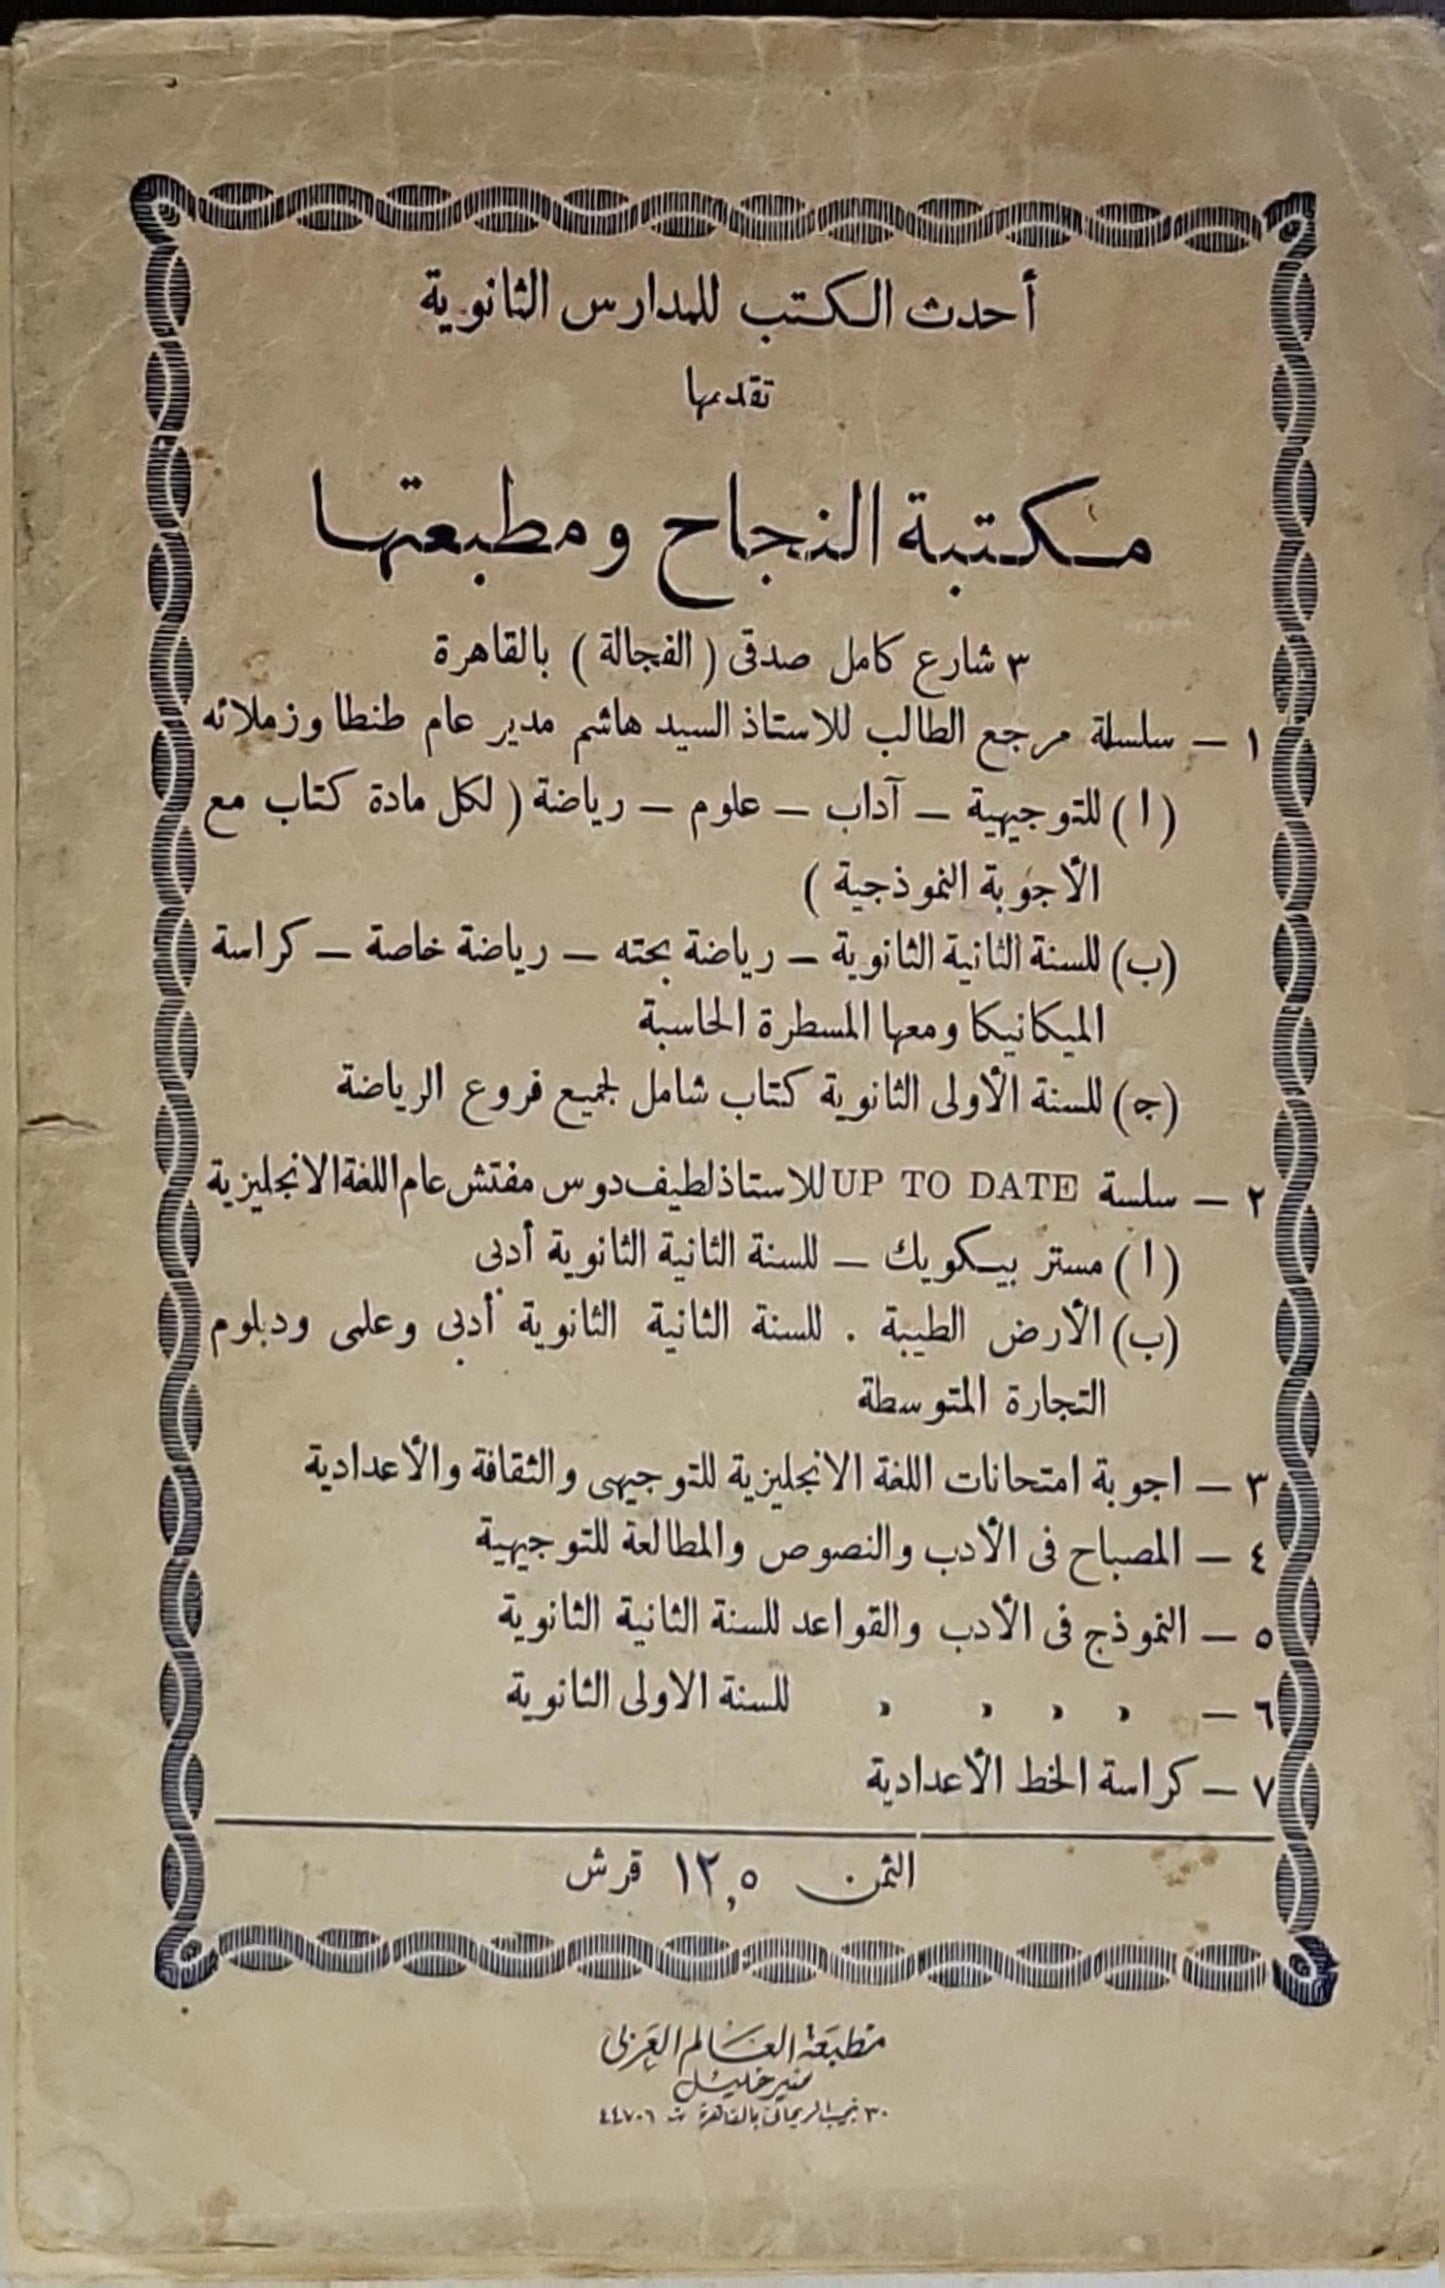 أحدث الكتب للمدارس الثانوية
تقدمها
مكتبة النجاح ومطبعتها
٣ شارع كامل صدقى ( الفجالة ) بالقاهرة
١ — سلسلة مرجع الطالب للاستاذ السيد هاشم مدير عام طنطا وزملائه
( ا ) للتوجيهية — آداب — علوم — رياضة ( لكل مادة كتاب مع
الأجوبة النموذجية )
(ب) للسنة الثانية الثانوية — رياضة بحته — رياضة خاصة — كراسة
الميكانيكا ومعها المسطرة الحاسبة
(ج) للسنة الأولى الثانوية كتاب شامل لجميع فروع الرياضة
٢ — سلسة UP TO DATE للاستاذ لطيف دوس مفتش عام اللغة الانجليزية
( ا ) مستر بيكويك — للسنة الثانية الثانوية أدبى
(ب) الأرض الطيبة . للسنة الثانية الثانوية أدبى وعلمى ودبلوم
التجارة المتوسطة
٣ — اجوبة امتحانات اللغة الانجليزية للتوجيهى والثقافة والأعدادية
٤ — المصباح فى الأدب والنصوص والمطالعة للتوجيهية
٥ — النموذج فى الأدب والقواعد للسنة الثانية الثانوية
٦ — » » » » للسنة الاولى الثانوية
٧ — كراسة الخط الأعدادية
الثمن ١٢,٥ قرش
مطبعة العالم العربى
منير خليل
٣٠ نجيب الريحانى بالقاهرة ت ٤٤٧٠٦